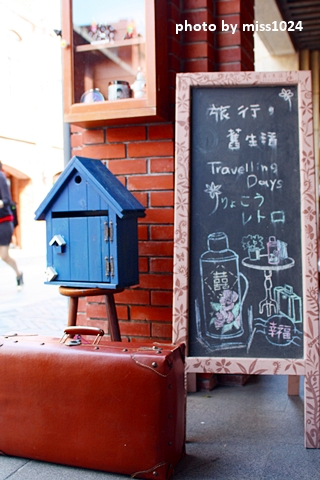 photo by miss1024
旅行，
舊生活
Travelling
Days
りょこう
レトロ
囍
幸福